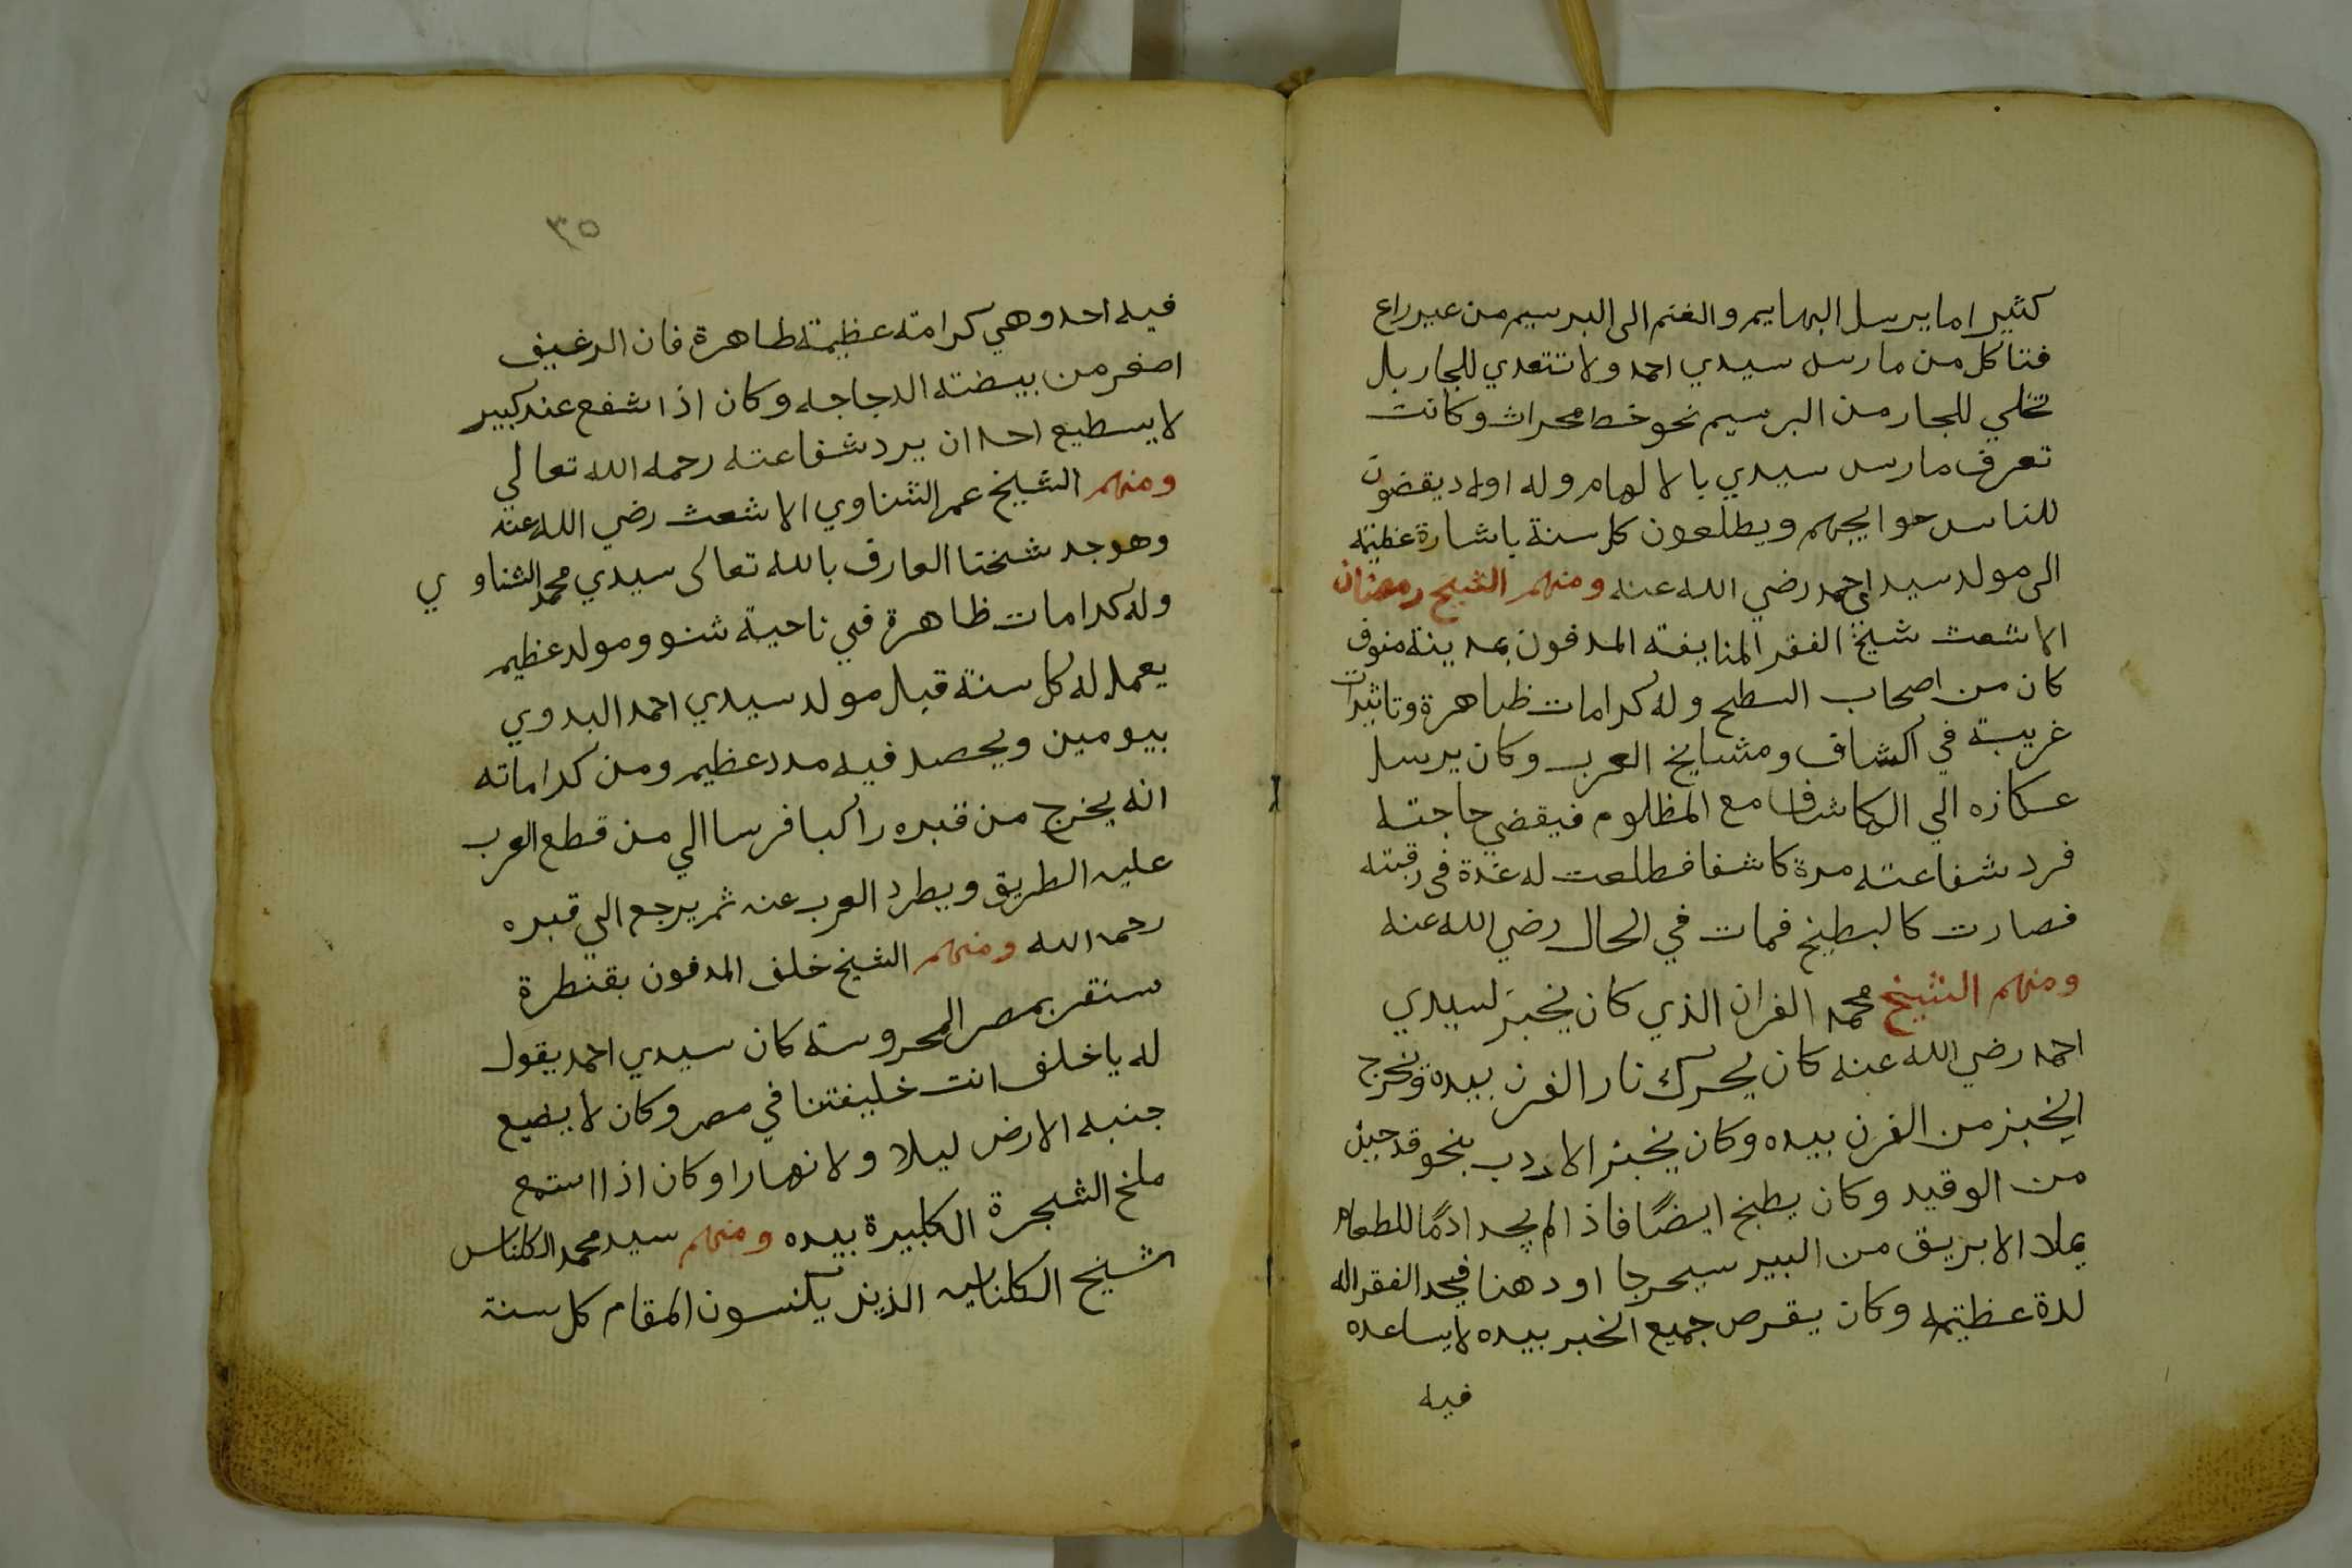 كثيرا ما يرسل البهايم والغنم الى البرسيم من عير راع
فتاكل من مارس سيدي احمد ولا تتعدي للجار بل
تخلي للجار من البرسيم نحو خط محراث وكانت
تعرف مارس سيدي بالالهام وله اولاد يقضون
للناس حوايجهم ويطلعون كل سنة باشارة عظيمة
الى مولد سيدي احمد رضي الله عنه ومنهم الشيخ رمضان
الاشعث شيخ الفقر المنايفة المدفون بمدينة منوف
كان من اصحاب السطح وله كرامات ظاهرة وتاثيرات
غريبة في الكشاف ومشايخ العرب وكان يرسل
عكازه الي الكاشف مع المظلوم فيقضي حاجته
فرد شفاعته مرة كاشفا فطلعت له غدة في رقبته
فصارت كالبطيخ فمات في الحال رضي الله عنه
ومنهم الشيخ محمد الفران الذي كان يخبز لسيدي
احمد رضي الله عنه كان يحرك نار الفرن بيده ويخرج
الخبز من الفرن بيده وكان يخبز الاردب بنحو قدحين
من الوقيد وكان يطبخ ايضًا فاذا لم يجد ادمًا للطعام
يملا الابريق من البير سيرجا او دهنا فيجد الفقرا له
لذة عظيمة وكان يقرص جميع الخبر بيده لا يساعده
فيه
٣٥
فيه احد وهي كرامته عظيمة ظاهرة فان الرغيف
اصغر من بيضته الدجاجه وكان اذا شفع عند كبير
لا يسطيع احد ان يرد شفاعته رحمه الله تعالي
ومنهم الشيخ عمر الشناوي الاشعث رضي الله عنه
وهو جد شيخنا العارف بالله تعالى سيدي محمد الشناوي
وله كرامات ظاهرة في ناحية شنو ومولد عظيم
يعمل له كل سنة قبل مولد سيدي احمد البدوي
بيومين ويحصل فيه مدد عظيم ومن كراماته
انه يخرج من قبره راكبا فرسا الي من قطع العرب
عليه الطريق ويطرد العرب عنه ثم يرجع الي قبره
رحمه الله ومنهم الشيخ خلف المدفون بقنطرة
سنقر بمصر المحروسة كان سيدي احمد يقول
له يا خلف انت خليفتنا في مصر وكان لا يضع
جنبه الارض ليلا ولا نهارا وكان اذا استمع
ملخ الشجرة الكبيرة بيده ومنهم سيد محمد الكناس
شيخ الكناسه الذين يكنسون المقام كل سنة